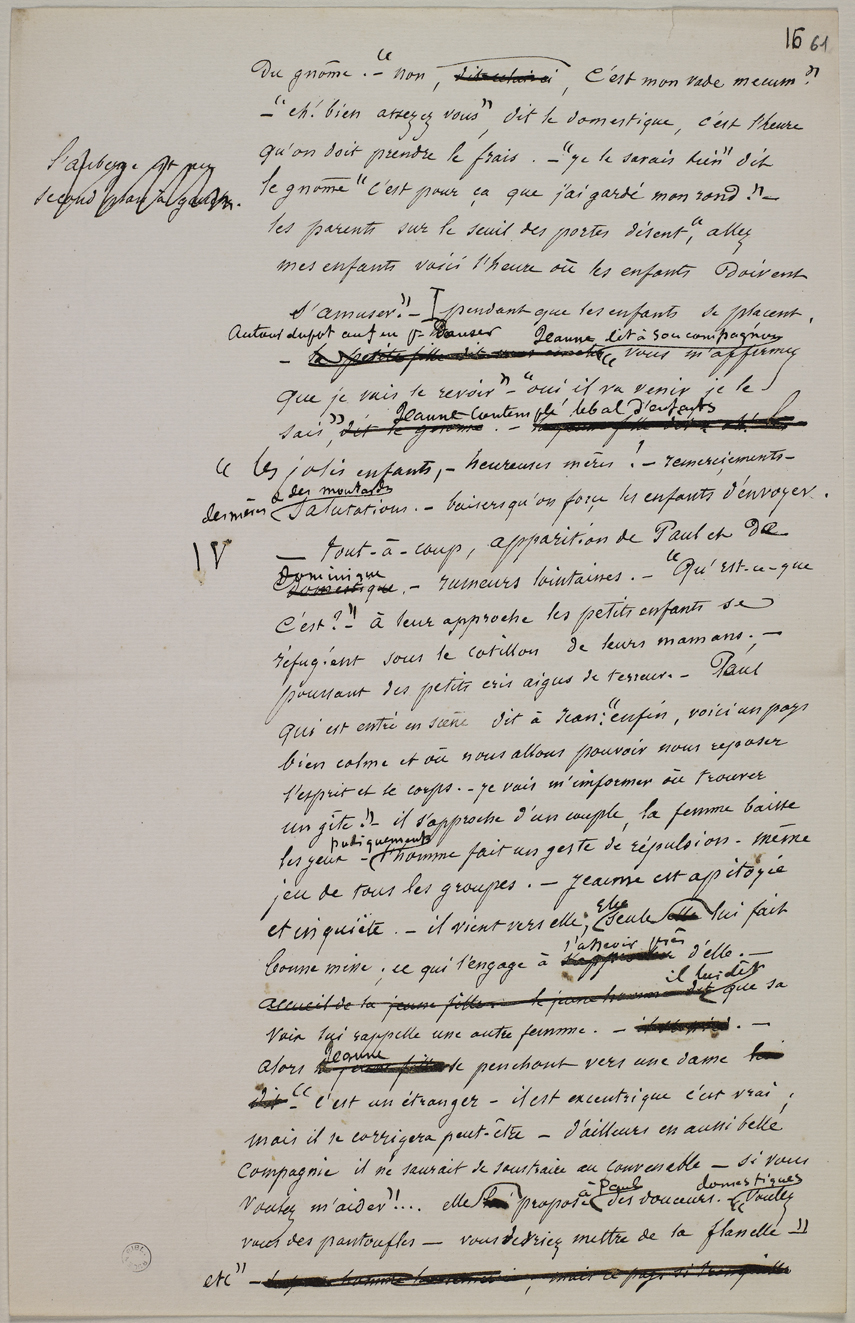 16 61
du gnôme. – "non, , c'est mon vade mecum"
– "eh! bien asseyez vous", dit le domestique, c'est l'heure
qu'on doit prendre le frais. – "je le savais bien" dit
le gnôme "c'est pour ça que j'ai gardé mon rond!" –
l'auberge est au
second plan à gauche.
les parents sur le seuil des portes disent, "allez
mes enfants voici l'heure où les enfants doivent
s'amuser!" – pendant que les enfants se placent,
autour du pot au feu pr danser Jeanne dit à son compagnon
– la petite fille dit "vous m'affirmez
que je vais le revoir" – "oui il va venir je le
Jeanne contemple le bal d'enfants
sais", dit le gnôme. –
" les jolis enfants, – heureuses mères! – remerciements –
des mères & des moutards
salutations. – baisers qu'on force les enfants d'envoyer.
IV – tout-à-coup, apparition de Paul et de
Dominique
domestique. – rumeurs lointaines. – "Qu'est-ce-que
c'est?" – à leur approche les petits enfants se
réfugient sous le cotillon de leurs mamans. –
poussant des petits cris aigus de terreur. – Paul
qui est entré en scène dit à Jean: "enfin, voici un pays
bien calme et où nous allons pouvoir nous reposer
l'esprit et le corps. – je vais m'informer où trouver
un gîte!" – il s'approche d'un couple, la femme baisse
pudiquement
les yeux – l'homme fait un geste de répulsion – même
jeu de tous les groupes. – Jeanne est apitoyée
et inquiète. – il vient vers elle, elle seule elle lui fait
s'asseoir près
bonne mine, ce qui l'engage à s'approcher d'elle. –
il lui dit
accueil de la jeune fille – le jeune homme dit que sa
voix lui rappelle une autre femme. – . –
Jeanne
alors la jeune fille se penchant vers une dame lui
dit – "c'est un étranger – il est excentrique c'est vrai,
mais il se corrigera peut-être – d'ailleurs en aussi belle
compagnie il ne saurait se soustraire au convenable – si vous
à Paul domestiques
voulez m'aider"!... elle lui propose des douceurs. – "voulez
vous des pantoufles – vous devriez mettre de la flanelle – "
etc" – , mais ce pays si tranquille